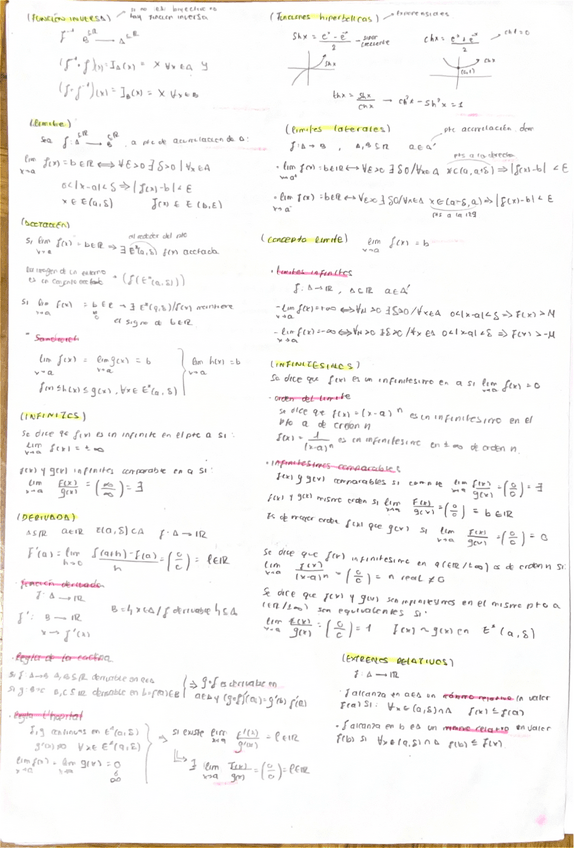 (FUNCIÓN INVERSA)
si no es biyectiva no
hay función inversa
f⁻¹ B⊆ℝ → A⊆ℝ
(f⁻¹∘f)(x) = I_A(x) = x ∀x∈A y
(f∘f⁻¹)(x) = I_B(x) = x ∀x∈B
(límite)
Sea f: A⊆ℝ → B⊆ℝ, a pto de acumulación de A:
lim x→a f(x) = b∈ℝ ⟺ ∀ε>0 ∃ δ>0 / ∀x∈A
0<|x-a|<δ ⟹ |f(x)-b|<ε
x ∈ E(a,δ) f(x) ∈ E(b,ε)
(ACOTACIÓN)
Si lim x→a f(x) = b∈ℝ ⟹ ∃ E*(a,δ) f(x) acotada
(f(E*(a,δ)))
Si lim x→a f(x) = b∈ℝ → ∃ E*(a,δ)/f(x) mantiene
el signo de b∈ℝ
· Sandwich
lim x→a f(x) = lim x→a g(x) = b
lim x→a h(x) = b
f(x) ≤ h(x) ≤ g(x), ∀x∈E*(a,δ)
(INFINITOS)
Se dice que f(x) es un infinito en el pto a si:
lim x→a f(x) = ±∞
f(x) y g(x) infinitos comparable en a si:
lim x→a f(x)/g(x) = (∞/∞) = ∃
(DERIVADA)
A⊆ℝ a∈ℝ E(a,δ)⊂A f: A → ℝ
f'(a) = lim h→0 f(a+h)-f(a)/h = (0/0) = ℓ∈ℝ
función derivada
f: A → ℝ
f': B → ℝ B = {x∈A / f derivable} ⊆ A
x → f'(x)
· Regla de la cadena
si f: A→B A,B⊆ℝ derivable en a∈A
si g: B→C B,C⊆ℝ derivable en b=f(a)∈B
⟹ g∘f es derivable en
a∈A y (g∘f)'(a) = g'(b) f'(a)
· Regla L'hopital
f, g continuas en E*(a,δ)
g'(x)≠0 ∀x∈E*(a,δ)
lim x→a f(x) = lim x→a g(x) = 0
ó
∞
⟹ si existe lim x→a f'(x)/g'(x) = ℓ∈ℝ
↳ ∃ lim x→a f(x)/g(x) = (0/0) = ℓ∈ℝ
(Funciones hiperbólicas)
shx = eˣ - e⁻ˣ / 2
creciente
chx = eˣ + e⁻ˣ / 2
shx
chx
(0,1)
thx = shx/chx → ch²x - sh²x = 1
(límites laterales)
f: A → B, A,B ⊆ ℝ a∈A'
pts a la derecha
· lim x→a⁺ f(x) = b∈ℝ ⟺ ∀ε>0 ∃ δ>0/∀x∈A x∈(a,a+δ) ⟹ |f(x)-b|<ε
· lim x→a⁻ f(x) = b∈ℝ ⟺ ∀ε>0 ∃ δ>0/∀x∈A x∈(a-δ,a) ⟹ |f(x)-b|<ε
pts a la izq
(CONCEPTO LÍMITE) lim x→a f(x) = b
· límites infinitos
f: A → ℝ, A⊆ℝ a∈A'
- lim x→a f(x) = +∞ ⟺ ∀M>0 ∃ δ>0 / ∀x∈A 0<|x-a|<δ ⟹ f(x)>M
- lim x→a f(x) = -∞ ⟺ ∀M>0 ∃ δ>0 / ∀x∈A 0<|x-a|<δ ⟹ f(x)>-M
(INFINITESIMOS)
Se dice que f(x) es un infinitesimo en a si lim x→a f(x) = 0
· orden del límite
Se dice que f(x) = (x-a)ⁿ es un infinitesimo en el
pto a de orden n
f(x) = 1/(x-a)ⁿ es un infinitesimo en ±∞ de orden n.
· infinitesimos comparables
f(x) y g(x) comparables si cumple lim x→a f(x)/g(x) = (0/0) = ∃
f(x) y g(x) mismo orden si lim x→a f(x)/g(x) = (0/0) = b∈ℝ
Es de mayor orden f(x) que g(x) si lim x→a f(x)/g(x) = (0/0) = 0
Se dice que f(x) infinitesimo en a (∈ℝ/±∞) es de orden n si:
lim x→a f(x)/(x-a)ⁿ = (0/0) = n real ≠0
Se dice que f(x) y g(x) son infinitesimos en el mismo pto a
(∈ℝ/±∞) son equivalentes si:
lim x→a f(x)/g(x) = (0/0) = 1 f(x) ~ g(x) en E*(a,δ)
(EXTREMOS RELATIVOS)
f: A → ℝ
· f alcanza en a∈A un máximo relativo en valor
f(a) si: ∀x∈(a,δ)∩A f(x) ≤ f(a)
· f alcanza en b∈A un mínimo relativo en valor
f(b) si ∀x∈(a,δ)∩A f(b) ≤ f(x).